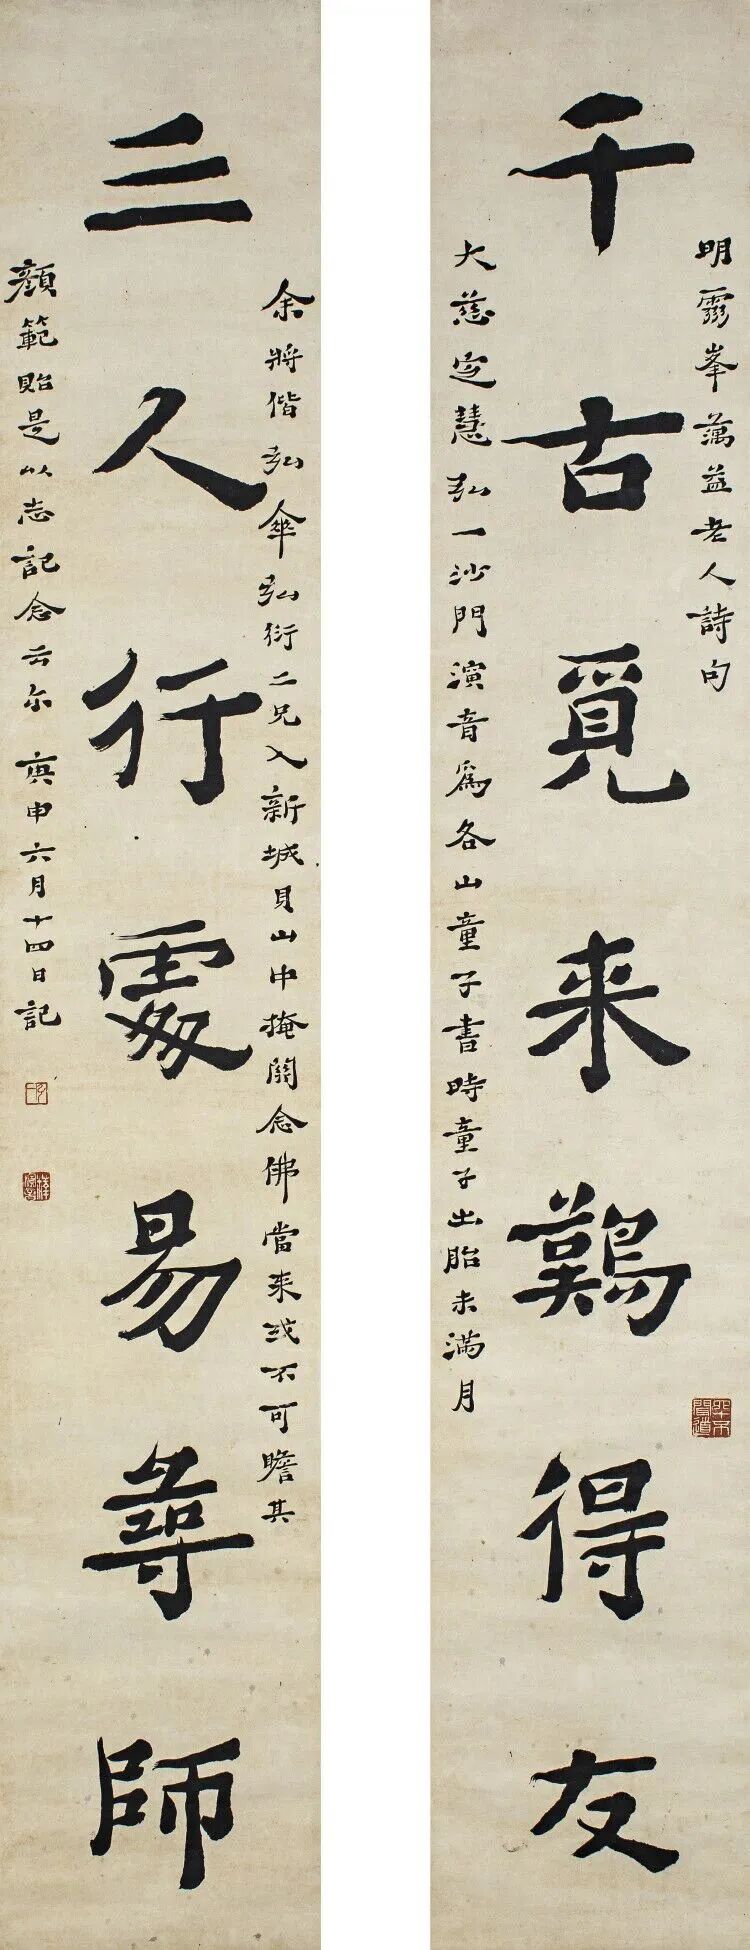 千古覓来難得友
明靈峯蕅益老人詩句
大慈定慧弘一沙門演音爲各山童子書時童子出胎未滿月
三人行處易尋師
余將偕弘傘弘衍二兄入新城貝山中掩關念佛當来或不可瞻其
顔範貽是以志記念云尔 庚申六月十四日記